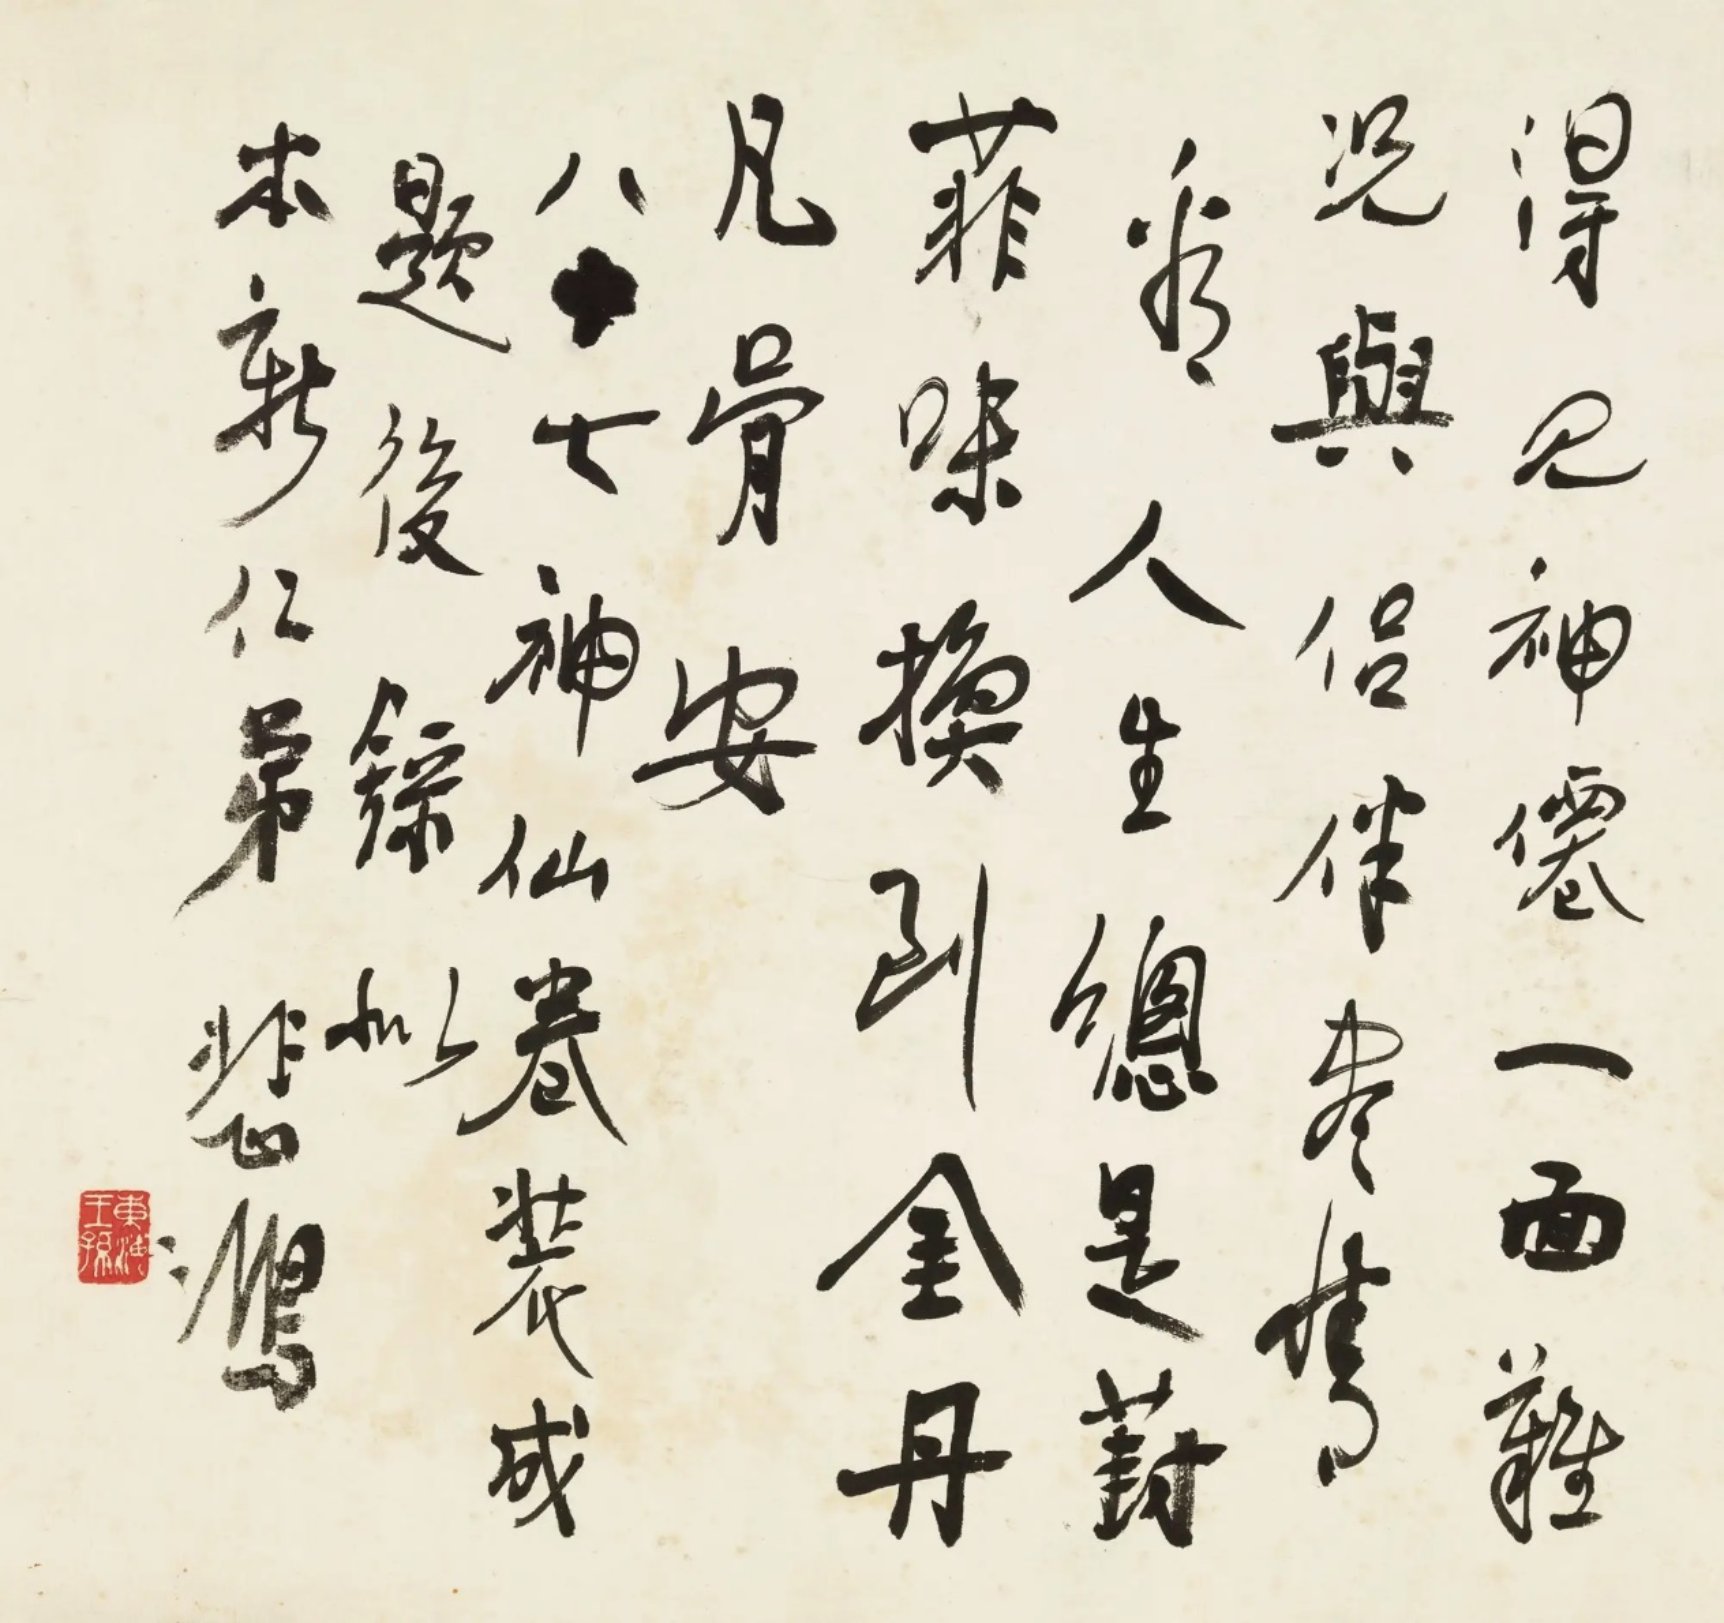 得見神僊一面難
況與侶伴盡情
看人生總是葑
菲味換到金丹
凡骨安
八十七神仙卷裝成
題後錄似
本新仁弟悲鴻
東海王孫